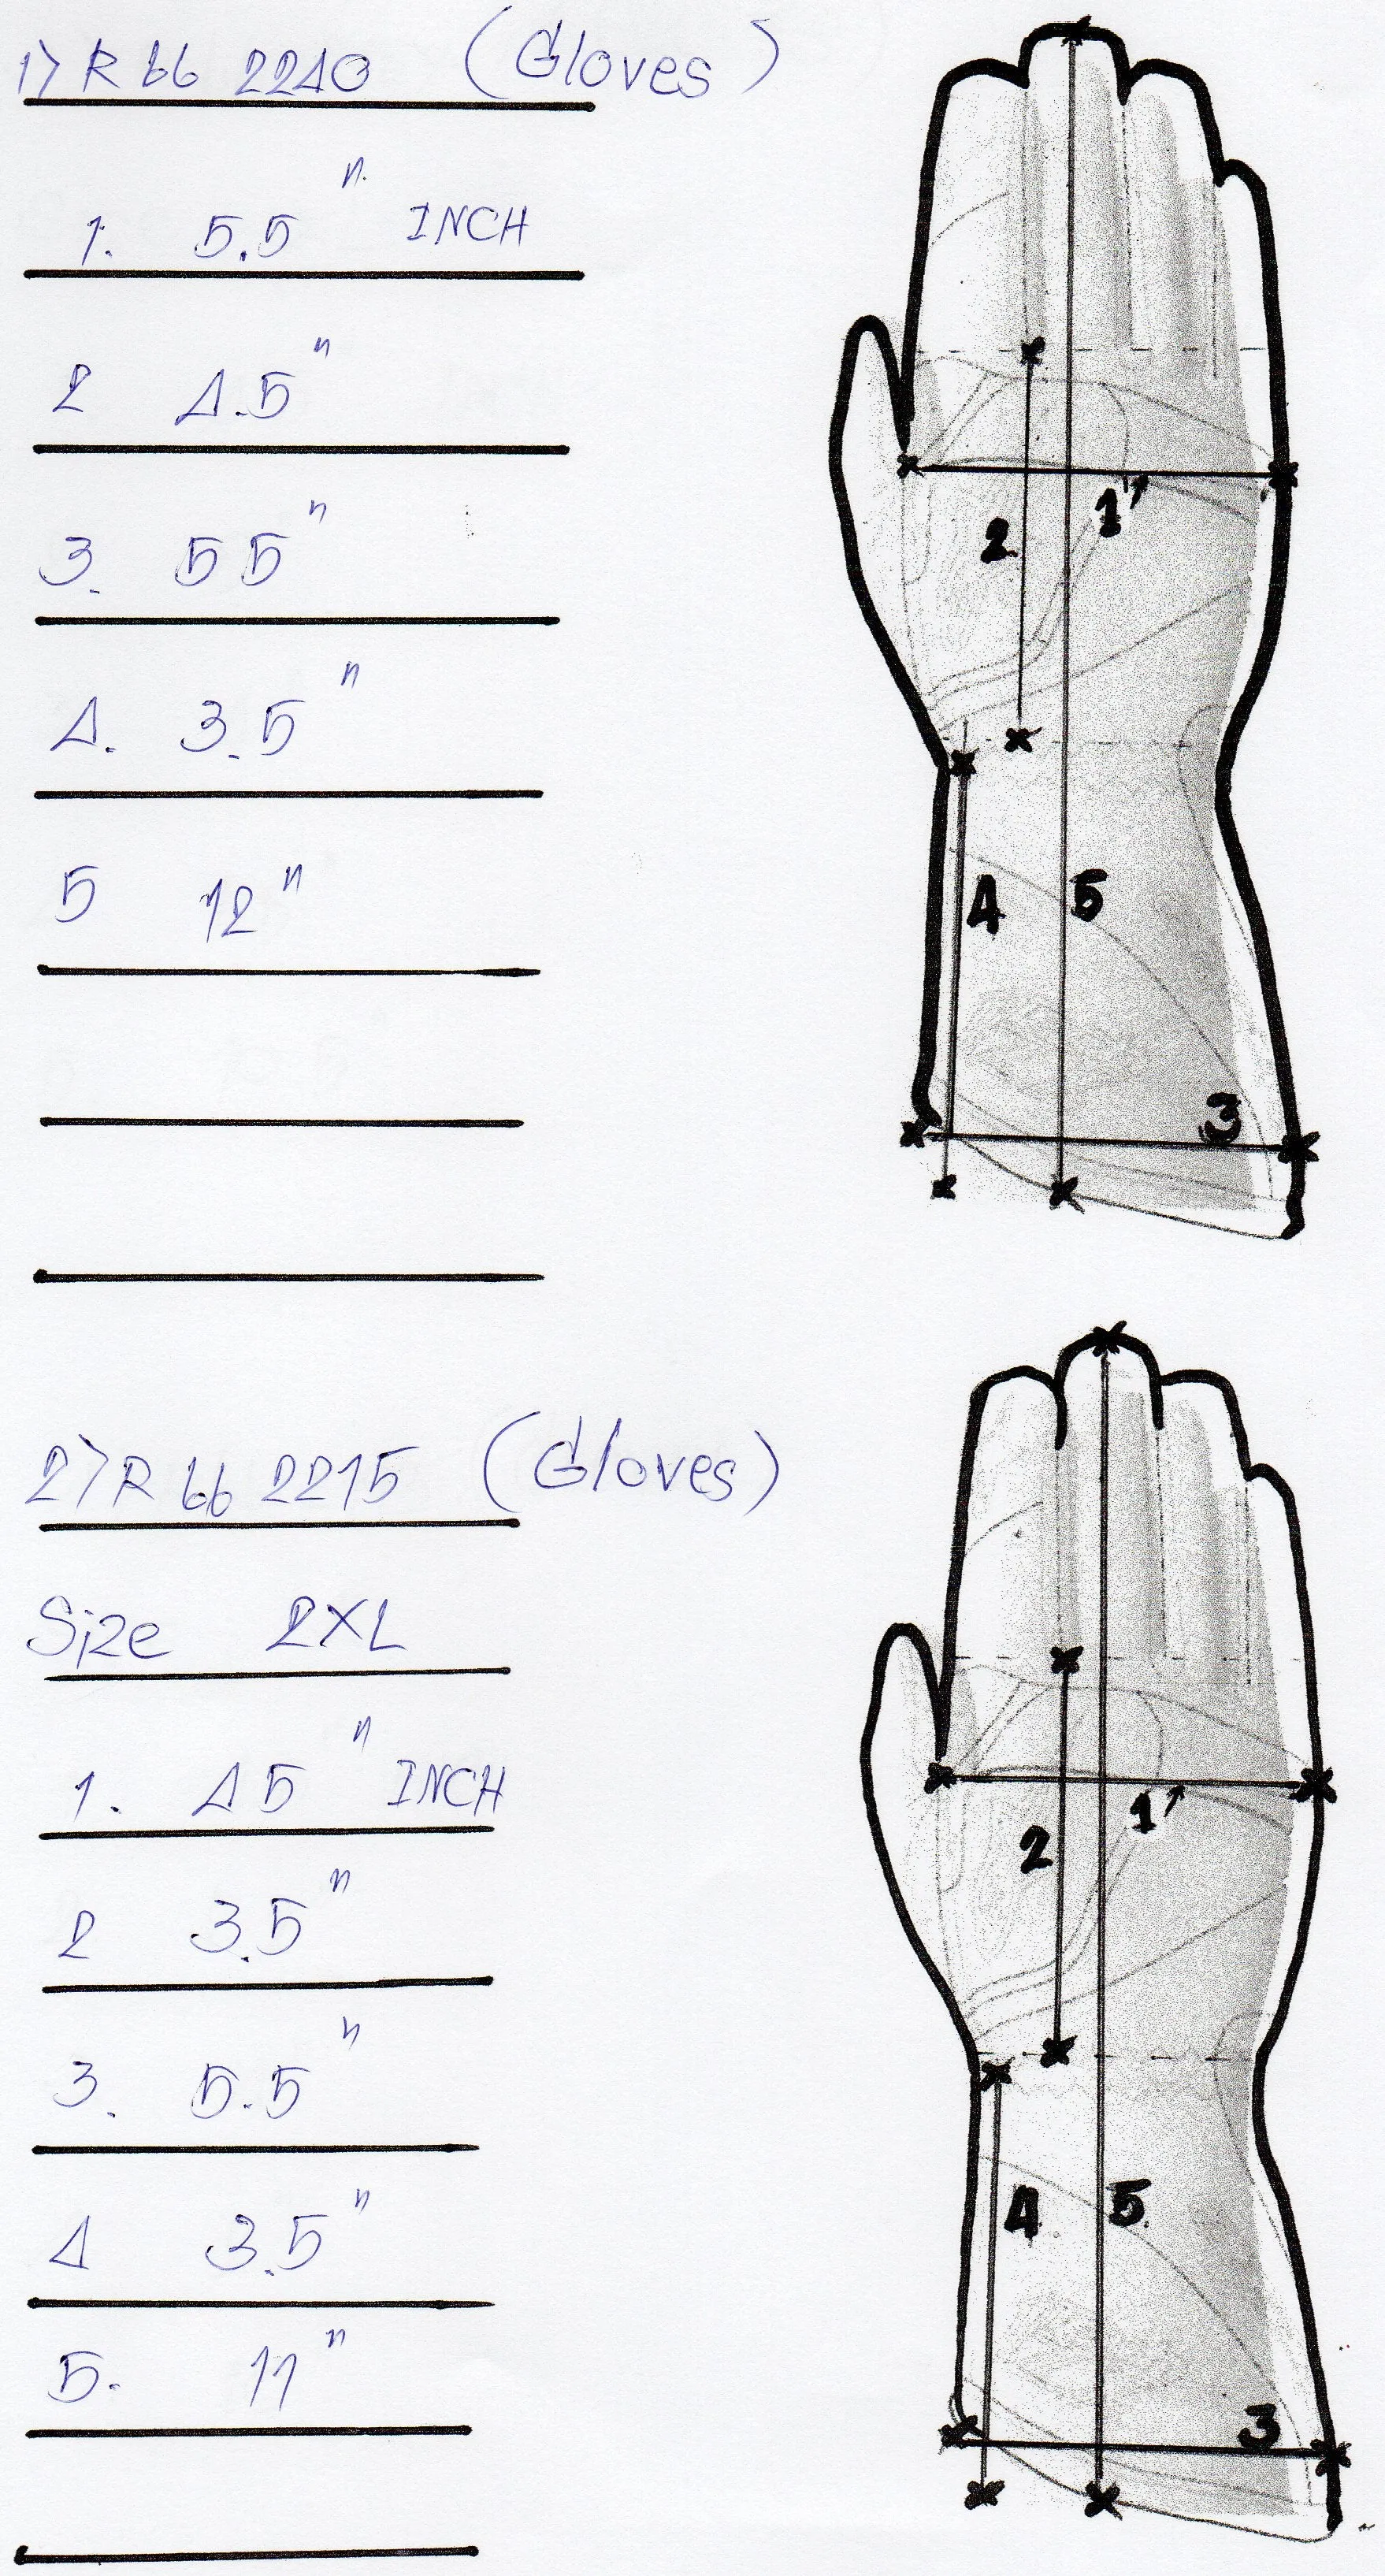 1) R66 2240 (Gloves)
1. 5.5" INCH
2 4.5"
3. 55"
4. 3.5"
5 12"
1
2
4
5
3
2) R66 2215 (Gloves)
Size 2XL
1. 45" INCH
2 3.5"
3. 5.5"
4 3.5"
5. 11"
1
2
4
5
3